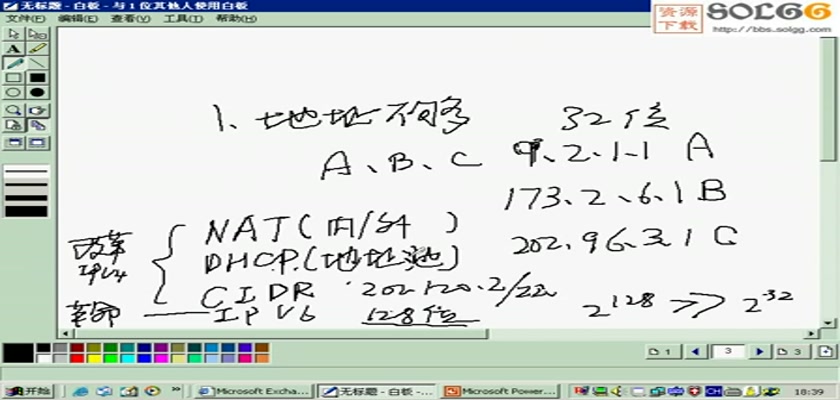 无标题 - 白板 - 与 1 位其他人使用白板
文件(F) 编辑(E) 查看(V) 工具(T) 帮助(H)
资源下载 SOLGG
http://bbs.solgg.com
A
1、地址不够多 32位
A、B、C 9.2.1.1 A
173.2.6.1 B
NAT(内/外)
202.96.3.1 C
改革 IPV4
DHCP(地址池)
CIDR 202.120.2/22
革命 — IPV6 128位 2^128 >> 2^32
1 3 3
开始 Microsoft Excha... 无标题 - 白板 -... Microsoft Power... CH 18:39